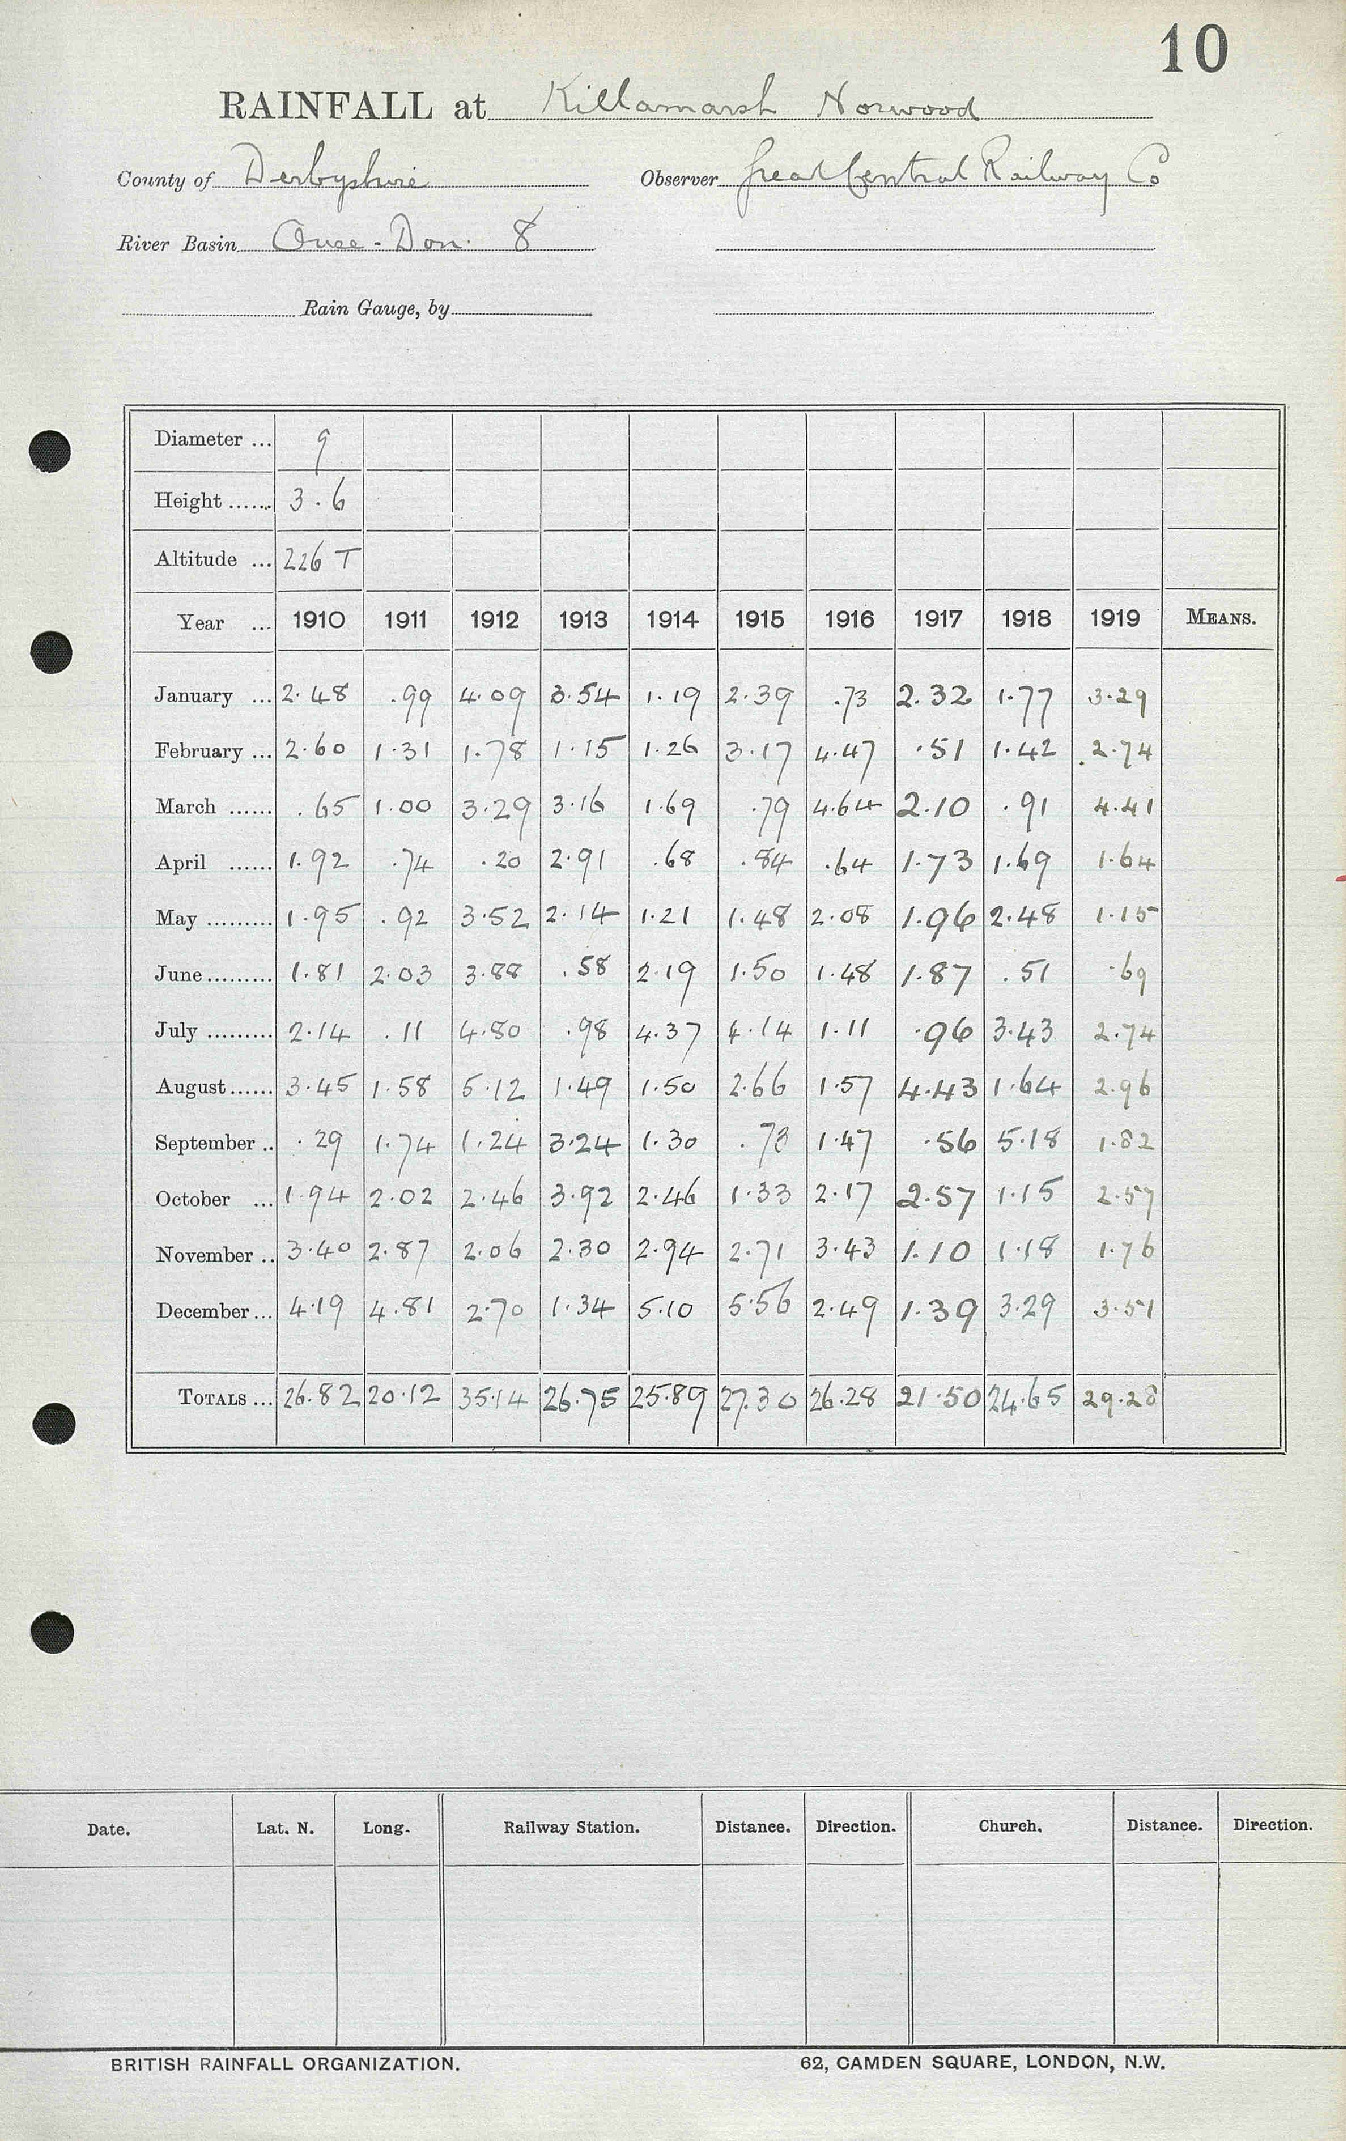 10
RAINFALL at Killamarsh Norwood
County of Derbyshire Observer Great Central Railway Co
River Basin Ouse - Don. 8
Rain Gauge, by
Diameter ... 9
Height ...... 3.6
Altitude ... 226 T
Year ... 1910 1911 1912 1913 1914 1915 1916 1917 1918 1919 MEANS.
January ... 2.48 .99 4.09 3.54 1.19 2.39 .73 2.32 1.77 3.29
February ... 2.60 1.31 1.78 1.15 1.26 3.17 4.47 .51 1.42 2.74
March ...... .65 1.00 3.29 3.16 1.69 .79 4.64 2.10 .91 4.41
April ...... 1.92 .74 .20 2.91 .68 .84 .64 1.73 1.69 1.64
May ......... 1.95 .92 3.52 2.14 1.21 1.48 2.08 1.96 2.48 1.15
June ......... 1.81 2.03 3.88 .58 2.19 1.50 1.48 1.87 .51 .69
July ......... 2.14 .11 4.80 .98 4.37 4.14 1.11 .96 3.43 2.74
August ...... 3.45 1.58 5.12 1.49 1.50 2.66 1.57 4.43 1.64 2.96
September .. .29 1.74 1.24 3.24 1.30 .73 1.47 .56 5.18 1.82
October ... 1.94 2.02 2.46 3.92 2.46 1.33 2.17 2.57 1.15 2.57
November .. 3.40 2.87 2.06 2.30 2.94 2.71 3.43 1.10 1.18 1.76
December ... 4.19 4.81 2.70 1.34 5.10 5.56 2.49 1.39 3.29 3.51
TOTALS ... 26.82 20.12 35.14 26.75 25.89 27.30 26.28 21.50 24.65 29.28
Date. Lat. N. Long. Railway Station. Distance. Direction. Church. Distance. Direction.
BRITISH RAINFALL ORGANIZATION. 62, CAMDEN SQUARE, LONDON, N.W.